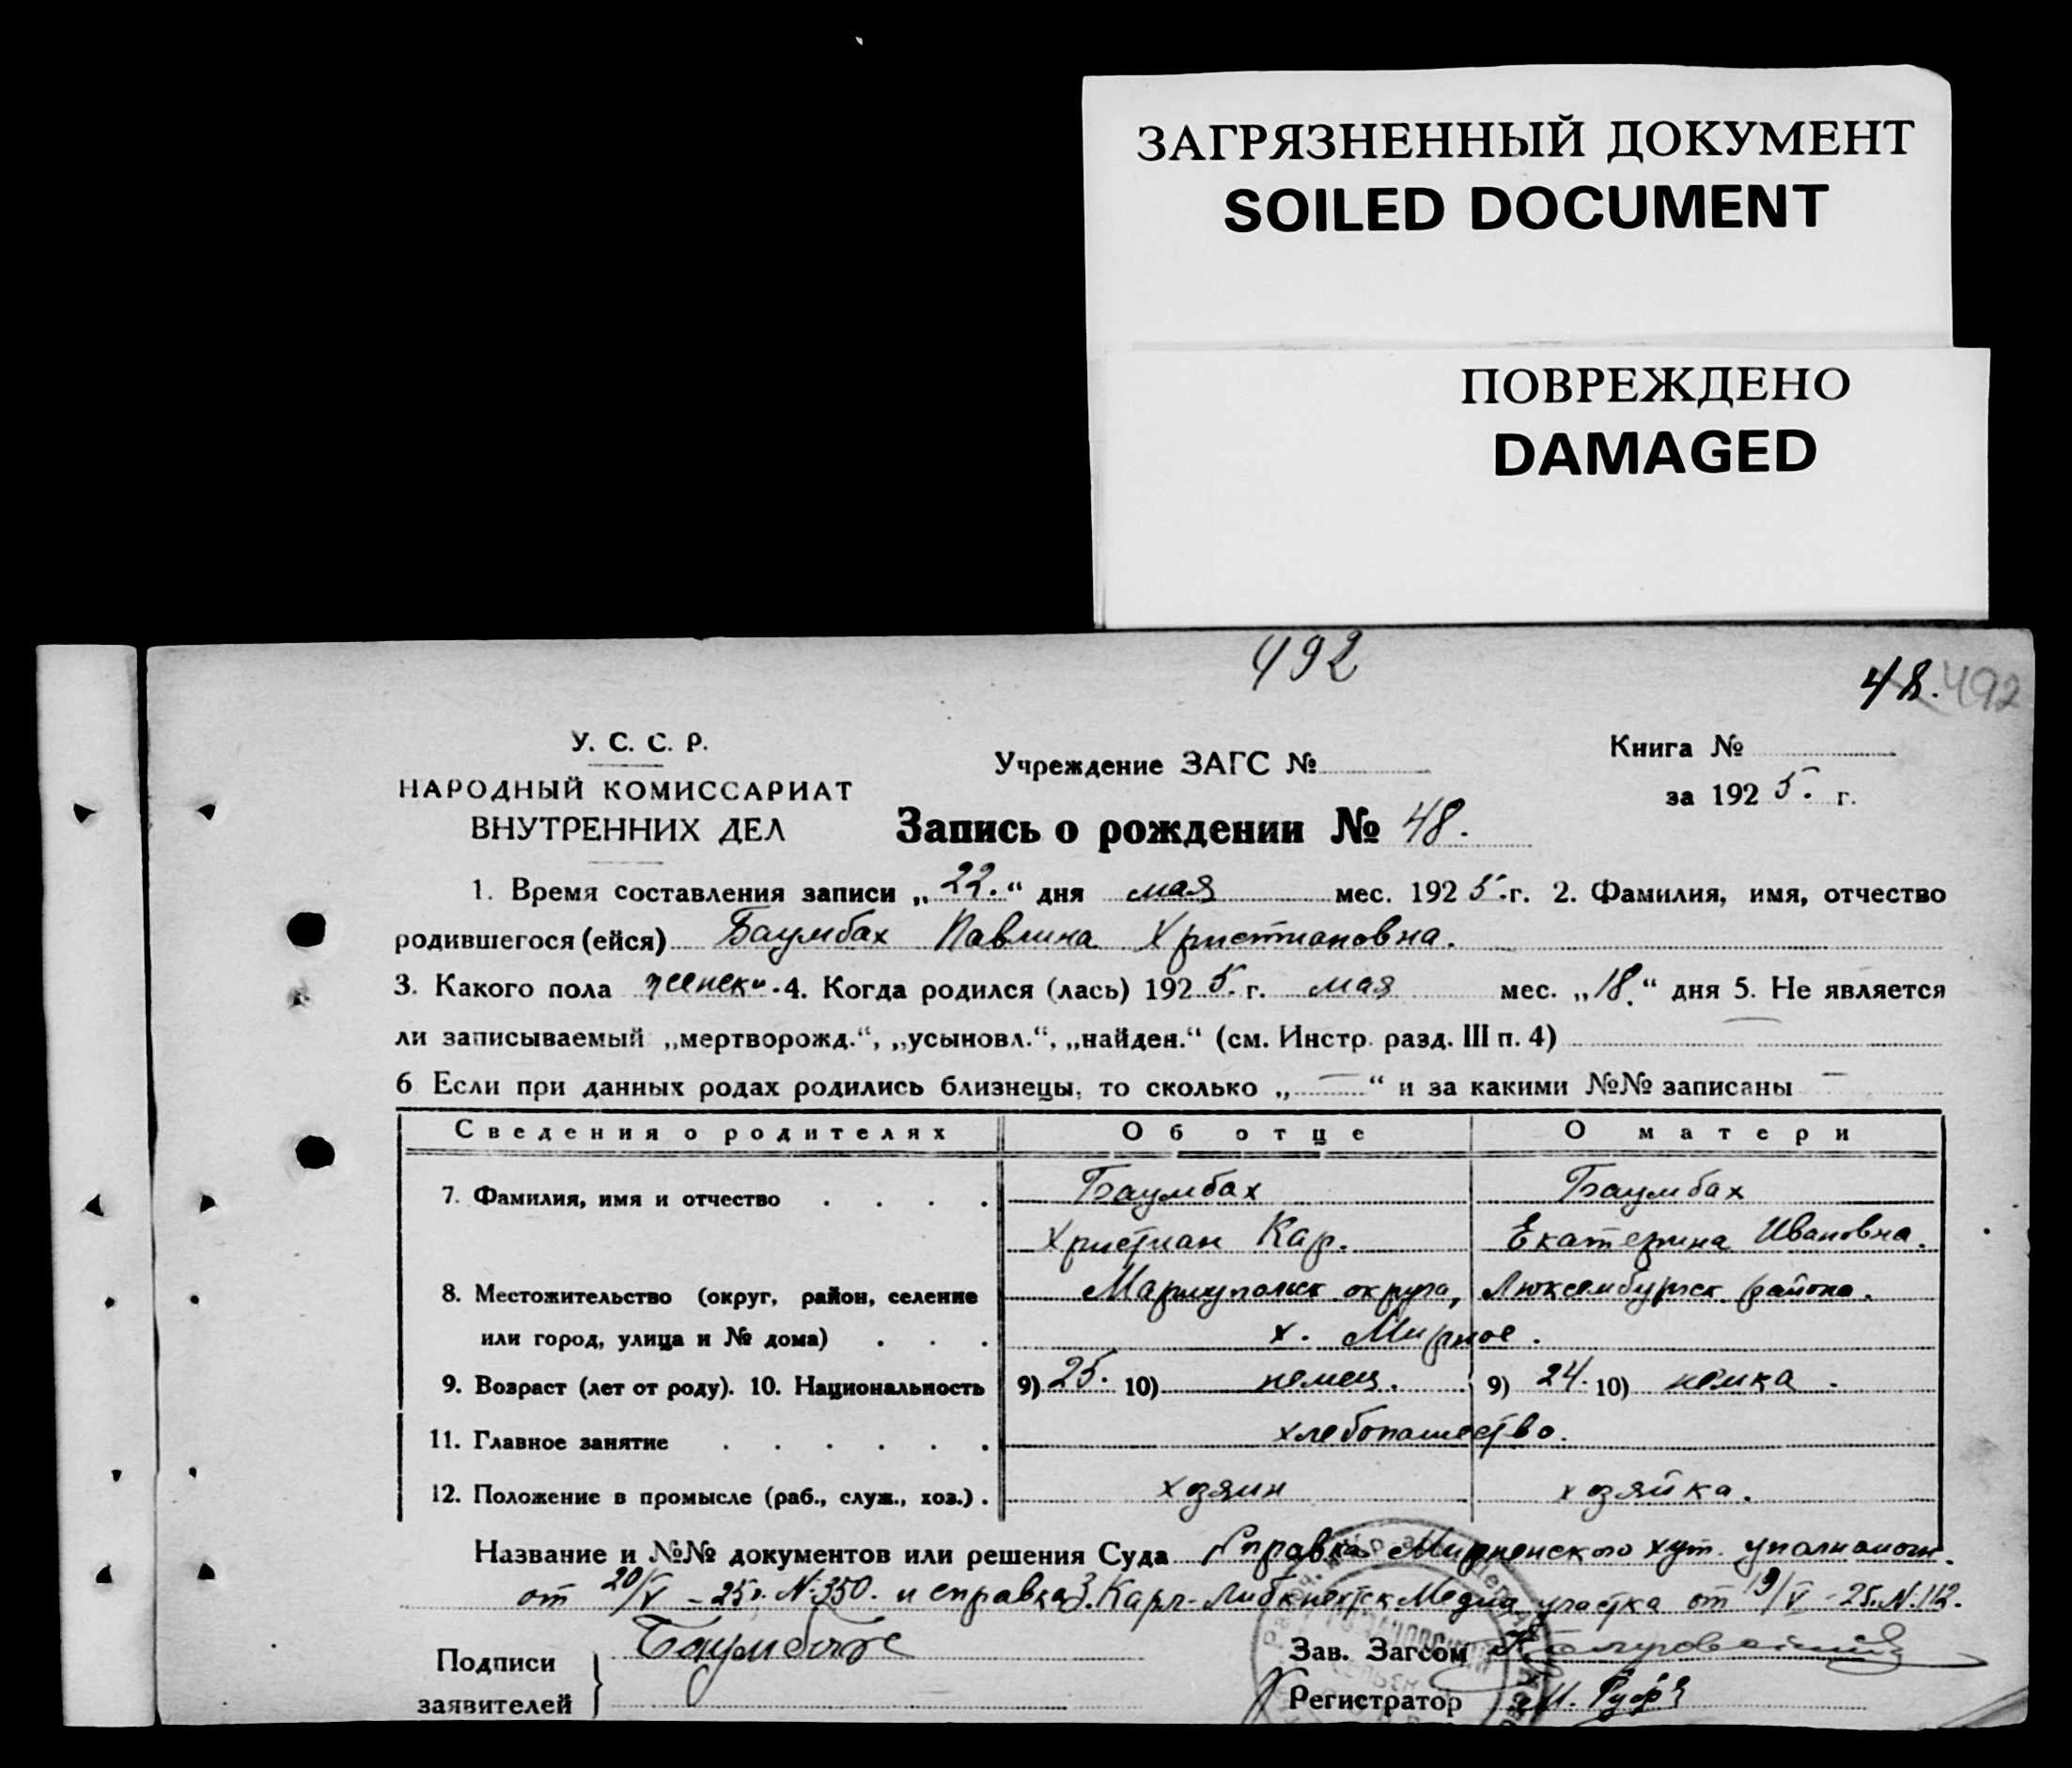 ЗАГРЯЗНЕННЫЙ ДОКУМЕНТ
SOILED DOCUMENT
ПОВРЕЖДЕНО
DAMAGED
492
48. 492
У. С. С. Р.
НАРОДНЫЙ КОМИССАРИАТ
ВНУТРЕННИХ ДЕЛ
Учреждение ЗАГС №
Книга №
за 1925. г.
Запись о рождении № 48.
1. Время составления записи „22.“ дня мая мес. 1925.г. 2. Фамилия, имя, отчество
родившегося (ейся) Баумбах Павлина Христиановна.
3. Какого пола женск. 4. Когда родился (лась) 1925. г. мая мес. „18.“ дня 5. Не является
ли записываемый „мертворожд.“, „усыновл.“, „найден.“ (см. Инстр. разд. III п. 4) —
6 Если при данных родах родились близнецы, то сколько „—“ и за какими №№ записаны —
Сведения о родителях Об отце О матери
7. Фамилия, имя и отчество . . . . Баумбах Баумбах
Христиан Кар. Екатерина Ивановна.
8. Местожительство (округ, район, селение Мариупольск округа, Люксембургск. района.
или город, улица и № дома) . . . х. Мирное.
9. Возраст (лет от роду). 10. Национальность 9) 25. 10) немец. 9) 24. 10) немка.
11. Главное занятие . . . . . . хлебопашество.
12. Положение в промысле (раб., служ., хоз.) . хозяин хозяйка.
Название и №№ документов или решения Суда Справка Мирненского хут. уполномоч.
от 20/V - 25г. N. 350. и справка З. Карл-Либкнехтск Медиц участка от 19/V - 25. N. 112.
Подписи
заявителей
Баумбах
Зав. Загсом
Регистратор